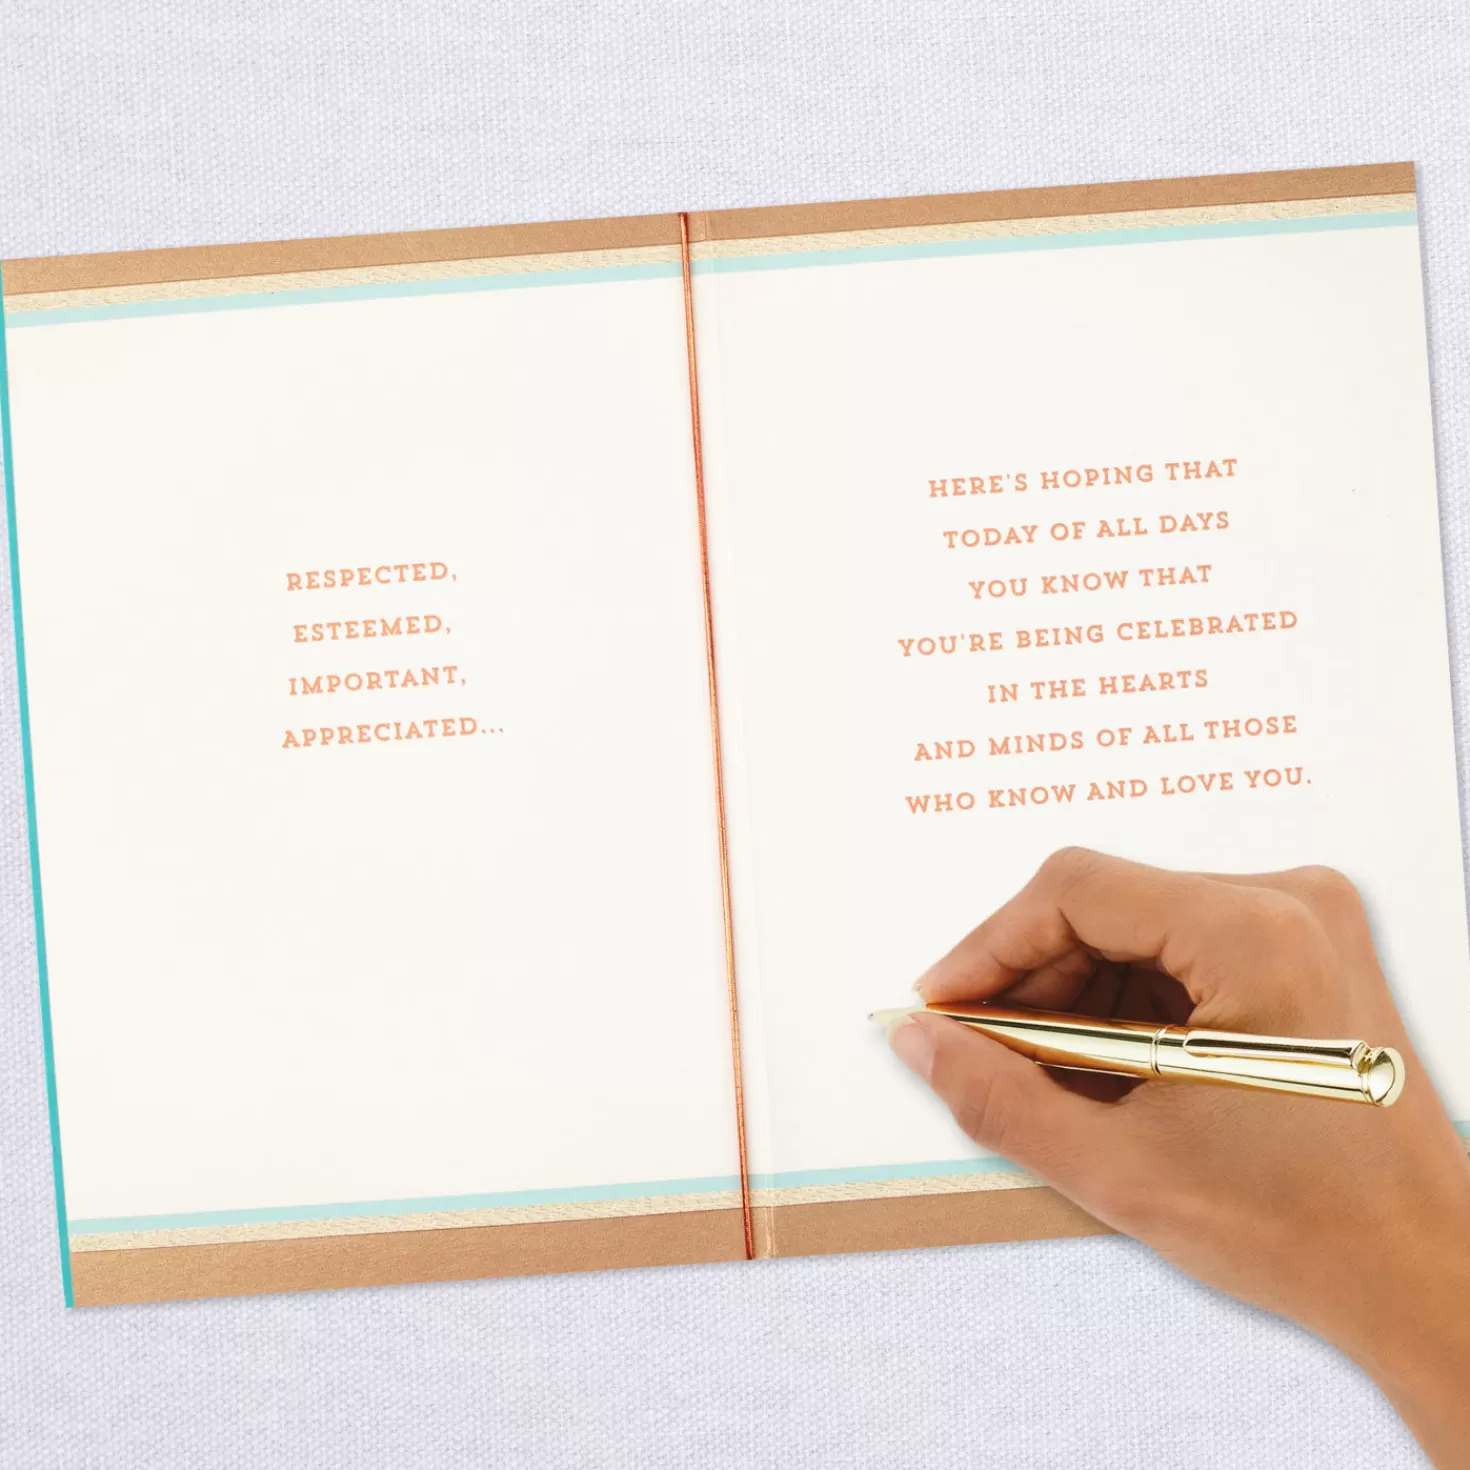 RESPECTED,
ESTEEMED,
IMPORTANT,
APPRECIATED...
HERE'S HOPING THAT
TODAY OF ALL DAYS
YOU KNOW THAT
YOU'RE BEING CELEBRATED
IN THE HEARTS
AND MINDS OF ALL THOSE
WHO KNOW AND LOVE YOU.